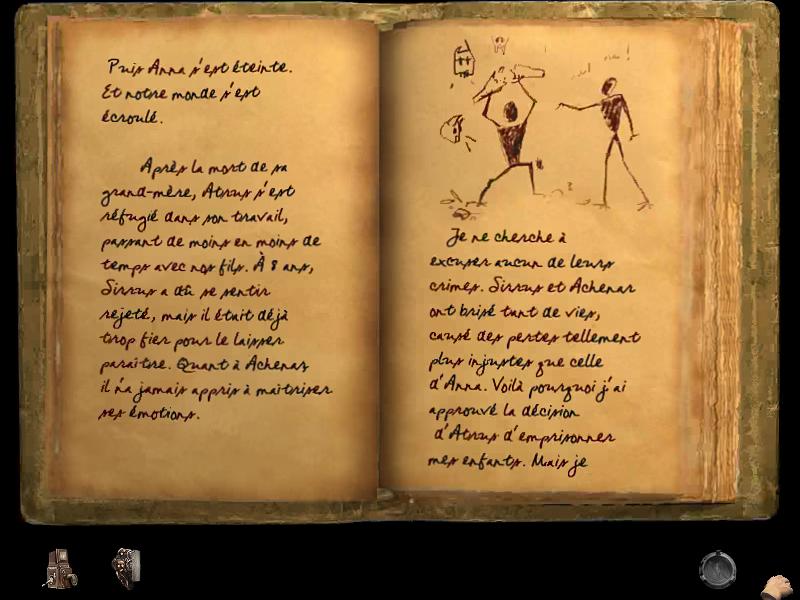 Puis Anna s'est éteinte.
Et notre monde s'est
écroulé.
Après la mort de sa
grand-mère, Atrus s'est
réfugié dans son travail,
passant de moins en moins de
temps avec nos fils. À 8 ans,
Sirrus a dû se sentir
rejeté, mais il était déjà
trop fier pour le laisser
paraître. Quant à Achenar
il n'a jamais appris à maîtriser
ses émotions.
Je ne cherche à
excuser aucun de leurs
crimes. Sirrus et Achenar
ont brisé tant de vies,
causé des pertes tellement
plus injustes que celle
d'Anna. Voilà pourquoi j'ai
approuvé la décision
d'Atrus d'emprisonner
mes enfants. Mais je